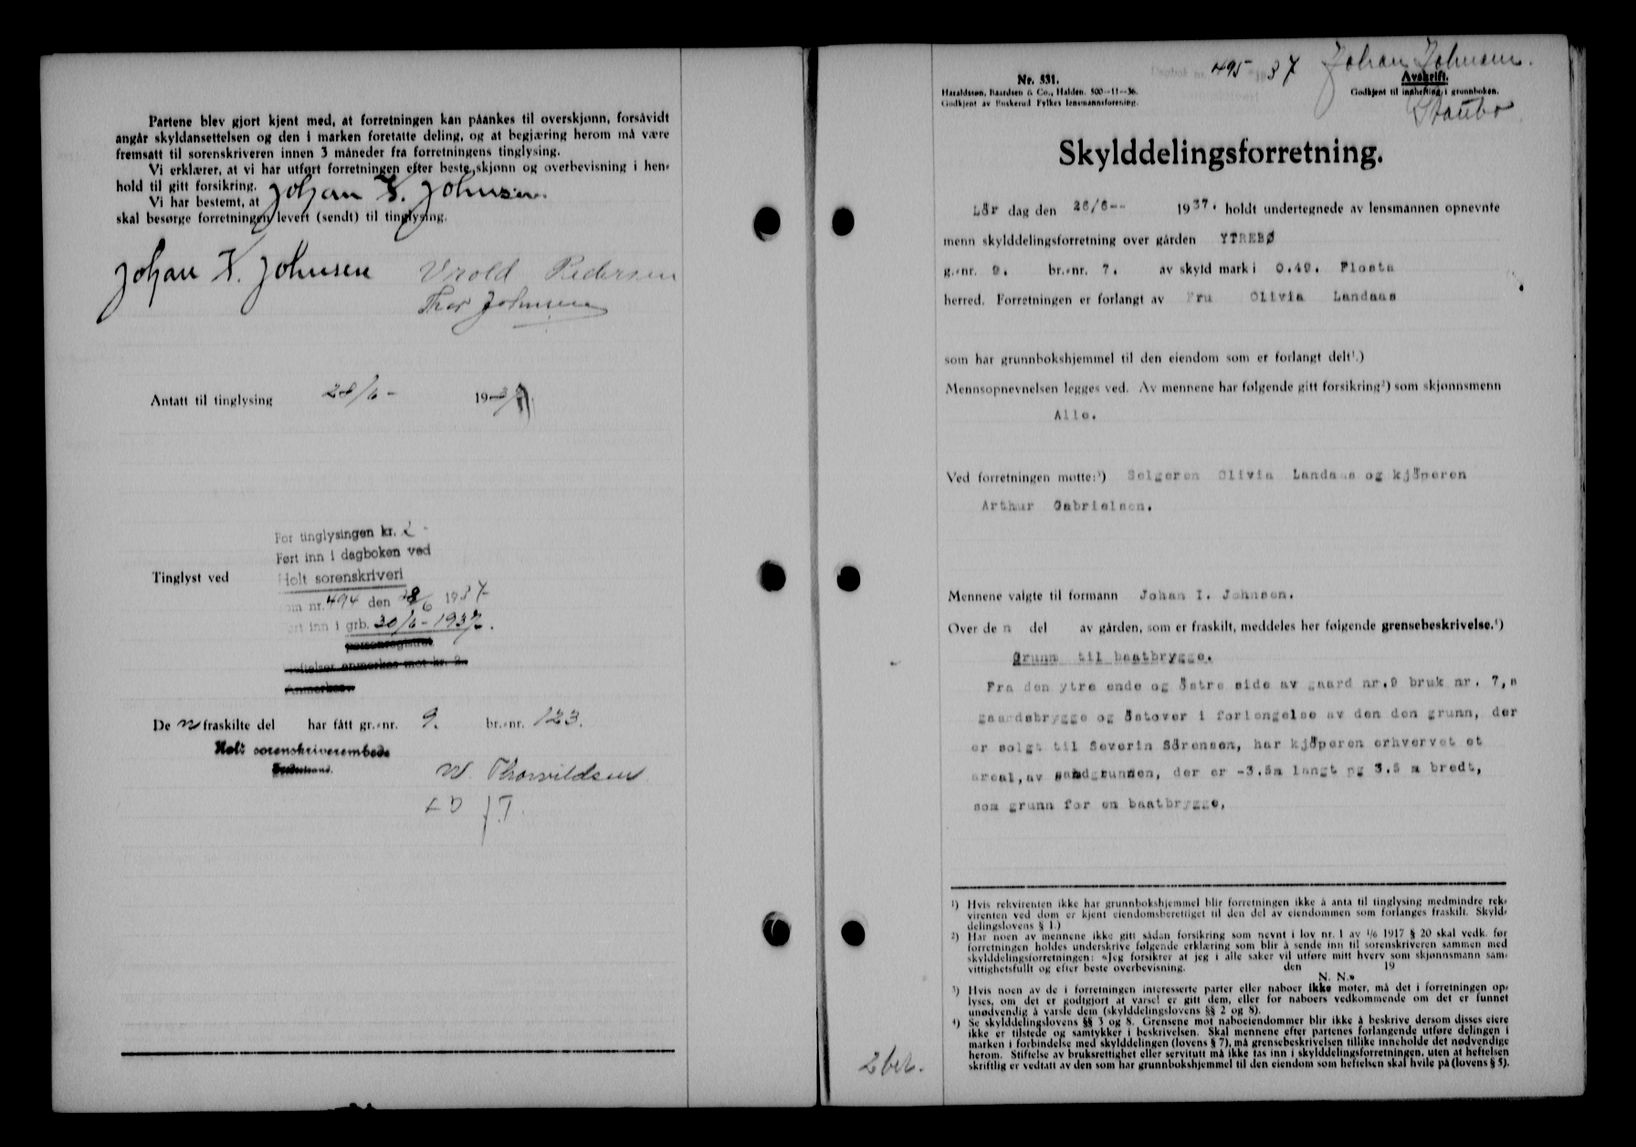 Partene blev gjort kjent med, at forretningen kan påankes til overskjønn, forsåvidt
angår skyldansettelsen og den i marken foretatte deling, og at begjæring herom må være
fremsatt til sorenskriveren innen 3 måneder fra forretningens tinglysing.
Vi erklærer, at vi har utført forretningen efter beste skjønn og overbevisning i hen-
hold til gitt forsikring.
Vi har bestemt, at Johan K. Johnsen
skal besørge forretningen levert (sendt) til tinglysing.
Johan K. Johnsen
Pedersen
Thor Johnsen
Antatt til tinglysing 28/6 - 19
For tinglysingen kr. 2 -
Ført inn i dagboken ved
Tinglyst ved Holt sorenskriveri
som nr. 494 den 28/6 1937
ført inn i grb. 30/6 - 1937.
personregistret
De n fraskilte del har fått gr.-nr. 9. br.-nr. 123.
Holt sorenskriverembede
W Thorvildsen
Nr. 531.
Haraldssen, Baardsen & Co., Halden. 500—11—36.
Godkjent av Buskerud Fylkes lensmannsforening.
495 - 37
Johan Johnsen.
Avskrift.
Godkjent til innhefting i grunnboken.
Staubo
Skylddelingsforretning.
Lår dag den 26/6-- 1937. holdt undertegnede av lensmannen opnevnte
menn skylddelingsforretning over gården YTREBØ
g.-nr. 9. br.-nr. 7. av skyld mark i 0.49. Flosta
herred. Forretningen er forlangt av Fru Olivia Landaas
som har grunnbokshjemmel til den eiendom som er forlangt delt¹.)
Mennsopnevnelsen legges ved. Av mennene har følgende gitt forsikring²) som skjønnsmenn
Alle.
Ved forretningen møtte:³) Selgeren Olivia Landaas og kjöperen
Arthur Gabrielsen.
Mennene valgte til formann Johan I. Johnsen.
Over de n del av gården, som er fraskilt, meddeles her følgende grensebeskrivelse.⁴)
Grunn til baatbrygge.
Fra den ytre ende og östre side av gaard nr.9 bruk nr. 7,s
gaardsbrygge og östover i forlengelse av den den grunn, der
er solgt til Severin Sörensen, har kjöperen erhvervet et
areal,av sandgrunnen, der er -3.5m langt pg 3.5 m bredt,
som grunn for en baatbrygge,
¹) Hvis rekvirenten ikke har grunnbokshjemmel blir forretningen ikke å anta til tinglysing medmindre rek-
virenten ved dom er kjent eiendomsberettiget til den del av eiendommen som forlanges fraskilt. Skyld-
delingslovens § 1.)
²) Har noen av mennene ikke gitt sådan forsikring som nevnt i lov nr. 1 av 1/6 1917 § 20 skal vedk. før
forretningen holdes underskrive følgende erklæring som blir å sende inn til sorenskriveren sammen med
skylddelingsforretningen: «Jeg forsikrer at jeg i alle saker vil utføre mitt hverv som skjønnsmann sam-
vittighetsfullt og efter beste overbevisning. den 19
N. N.»
³) Hvis noen av de i forretningen interesserte parter eller naboer ikke møter, må det i forretningen op-
lyses, om det er godtgjort at varsel er gitt dem, eller for naboers vedkommende om det er funnet
unødvendig å varsle dem (skylddelingslovens §§ 2 og 8).
⁴) Se skylddelingslovens §§ 3 og 8. Grensene mot naboeiendommer blir ikke å beskrive dersom disses eiere
ikke er tilstede og samtykker i beskrivelsen. Skal mennene efter partenes forlangende utføre delingen i
marken i forbindelse med skylddelingen (lovens § 7), må grensebeskrivelsen tillike inneholde det nødvendige
herom. Stiftelse av bruksrettighet eller servitutt må ikke tas inn i skylddelingsforretningen, uten at heftelsen
skriftlig er vedtatt av den som har grunnbokshjemmel til den eiendom som heftelsen skal hvile på (lovens § 5).